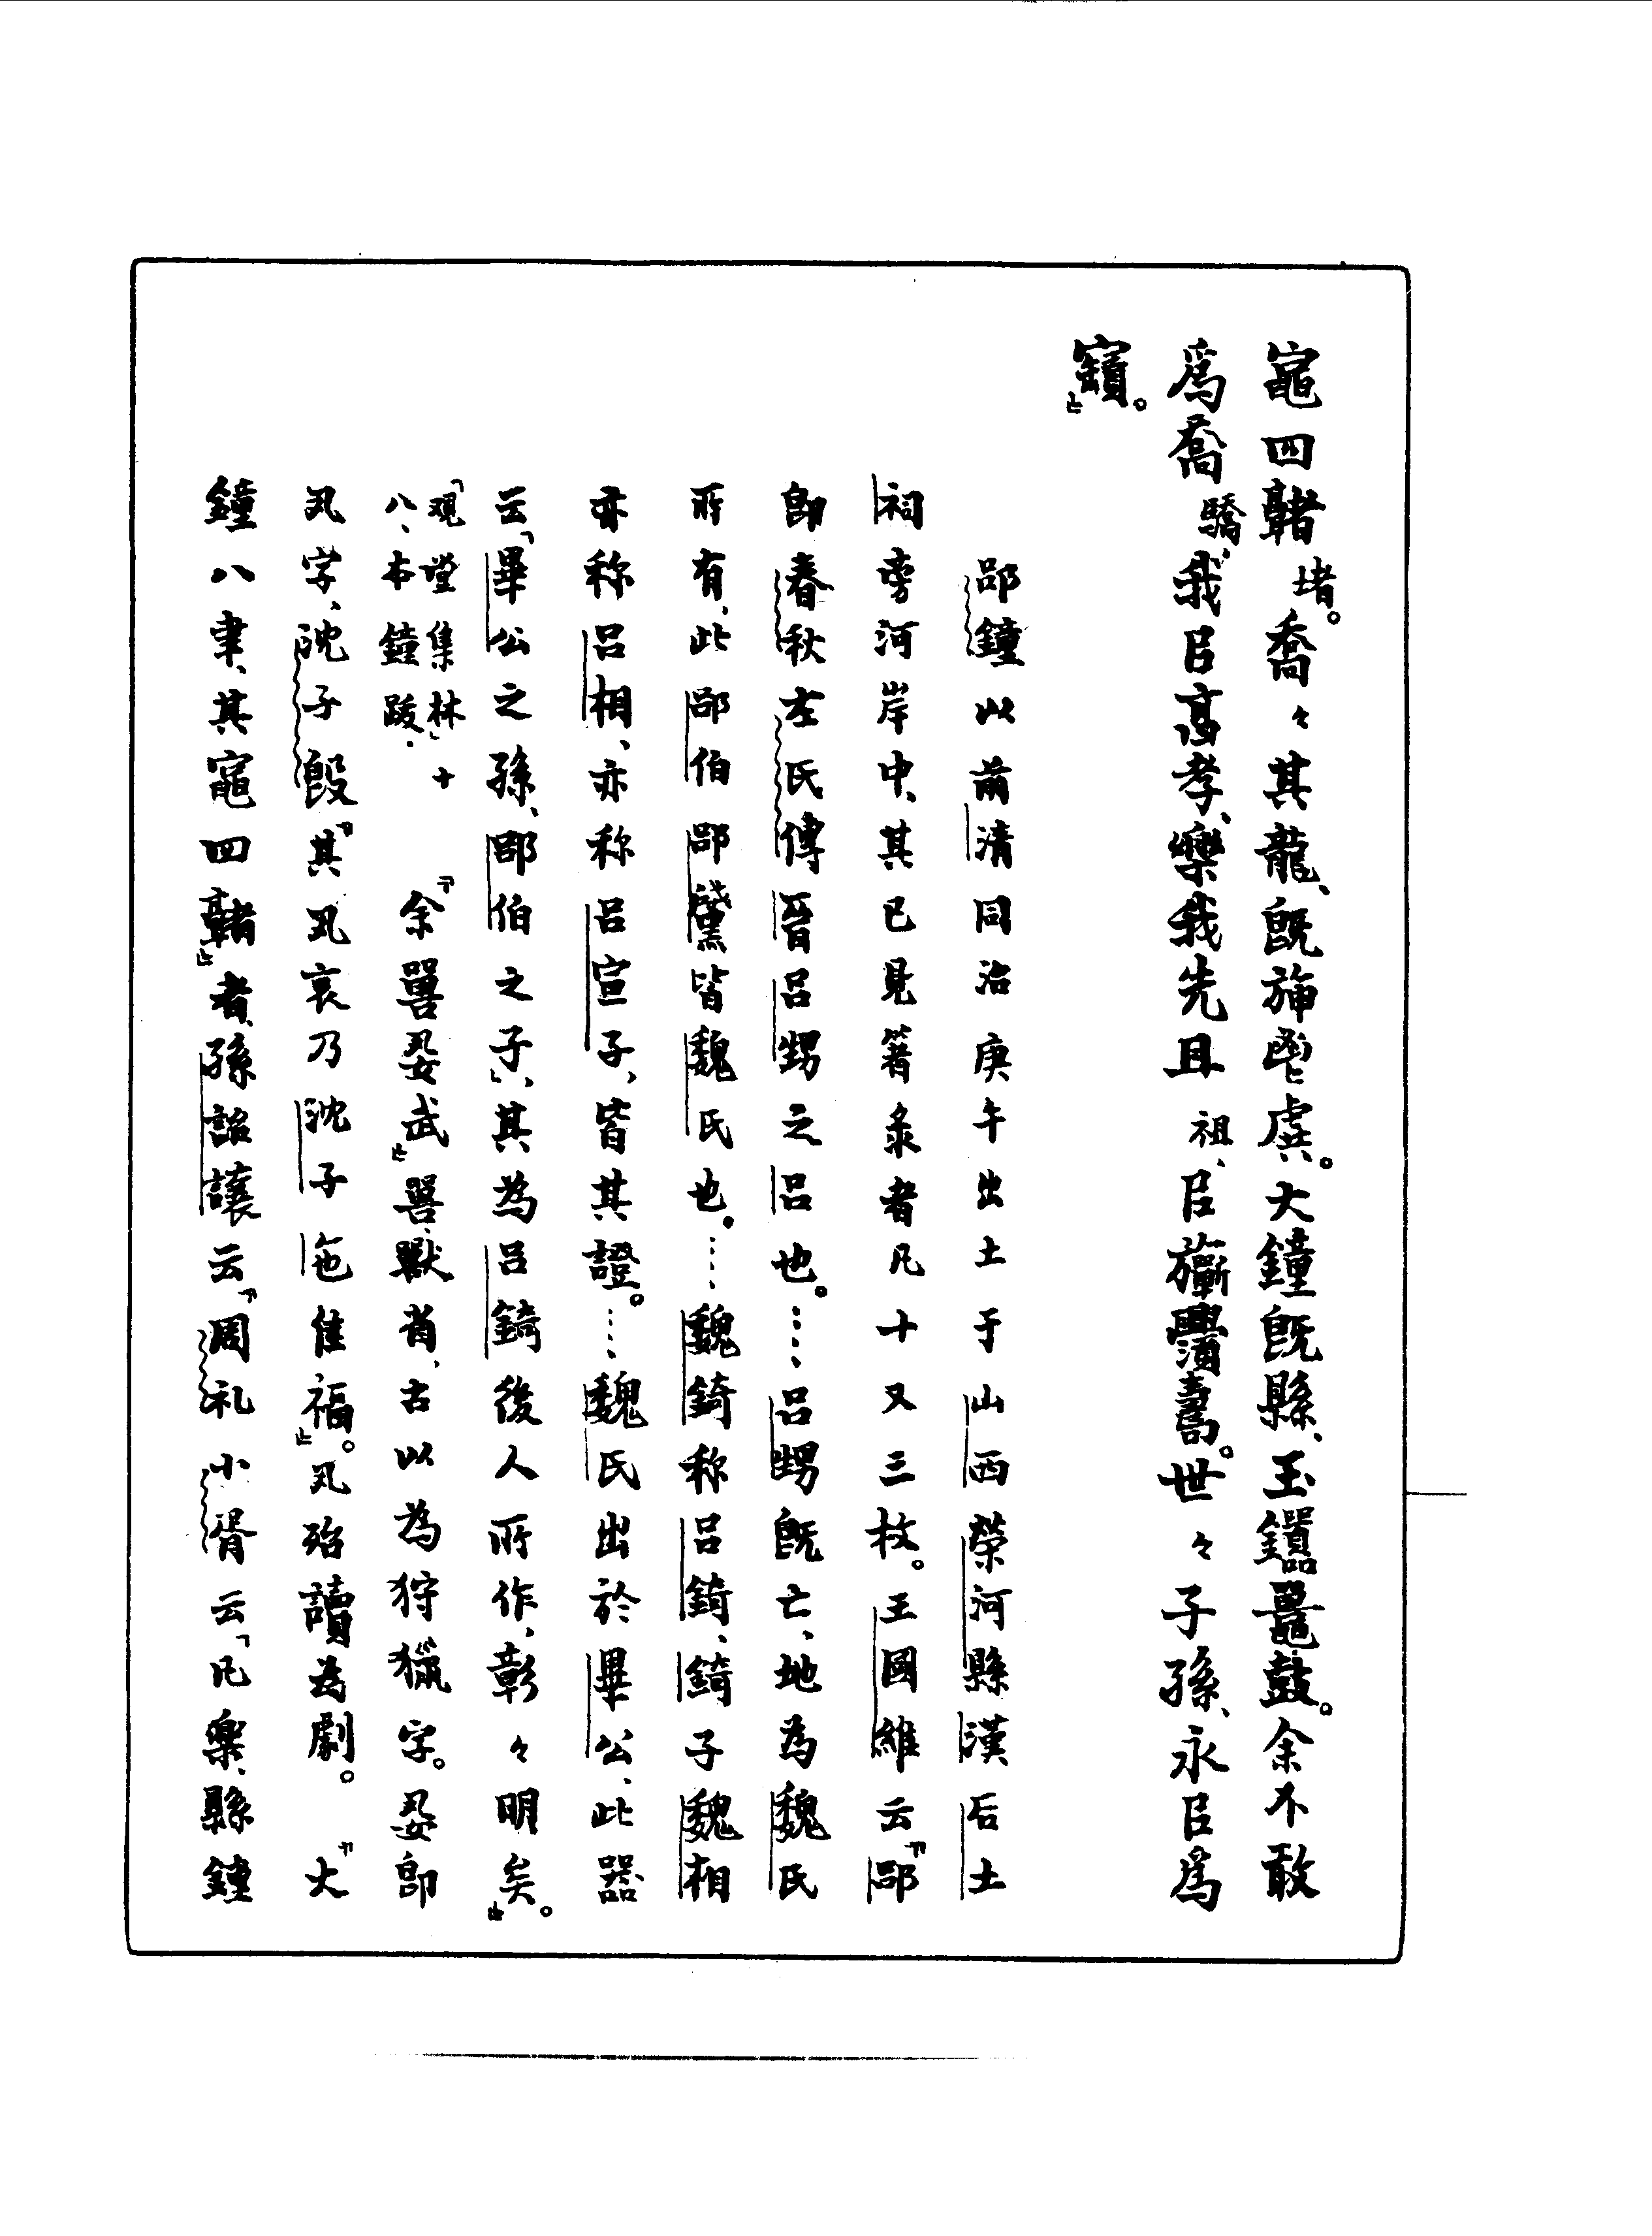 竈四堵堵。喬々其龍、既旃鬯虡。大鐘既縣、玉鐺鼍鼓。余不敢
爲喬驕、我㠯高孝、樂我先且祖、㠯旂眉壽。世々子孫、永㠯爲
寶。」
郘鐘以前清同治庚午出土于山西榮河縣漢后土
祠旁河岸中、其已見箸彔者凡十又三枚。王國維云『郘
即春秋左氏傳晉呂甥之呂也。……呂甥既亡、地為魏氏
所有、此郘伯郘皆魏氏也。……魏錡称呂錡、錡子魏相
亦称呂相、亦称呂宣子、皆其證。……魏氏出於畢公、此器
云「畢公之孫、郘伯之子」、其為呂錡後人所作、彰々明矣。』
「观堂集林」十八、本鐘跋.『余嘼武』嘼、獸省、古以為狩獵字。即
丮字、沈子𣪘『其丮哀乃沈子也隹福』。丮殆讀為劇。『大
鐘八聿、其竈四堵』者、孫詒讓云『周礼小胥云「凡樂縣鐘